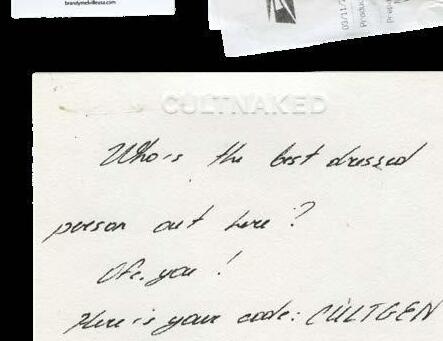 brandymelvilleusa.com
03/11/
Produc
Prepa
CULTNAKED
Who's the best dressed
person out here?
Ofc, you!
Here is your code: CULTGEN